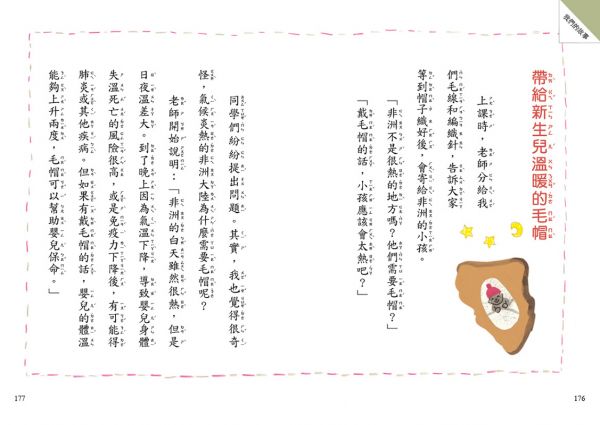 我們的故事
帶給新生兒溫暖的毛帽
上課時，老師分給我
們毛線和編織針，告訴大家
等到帽子織好後，會寄給非洲的小孩。
「非洲不是很熱的地方嗎？他們需要毛帽？」
「戴毛帽的話，小孩應該會太熱吧？」
同學們紛紛提出問題。其實，我也覺得很奇
怪，氣候炎熱的非洲大陸為什麼需要毛帽呢？
老師開始說明：「非洲的白天雖然很熱，但是
日夜溫差大。到了晚上因為氣溫下降，導致嬰兒身體
失溫死亡的風險很高，或是免疫力下降後，有可能得
肺炎或其他疾病。但如果有戴毛帽的話，嬰兒的體溫
能夠上升兩度，毛帽可以幫助嬰兒保命。」
176
177